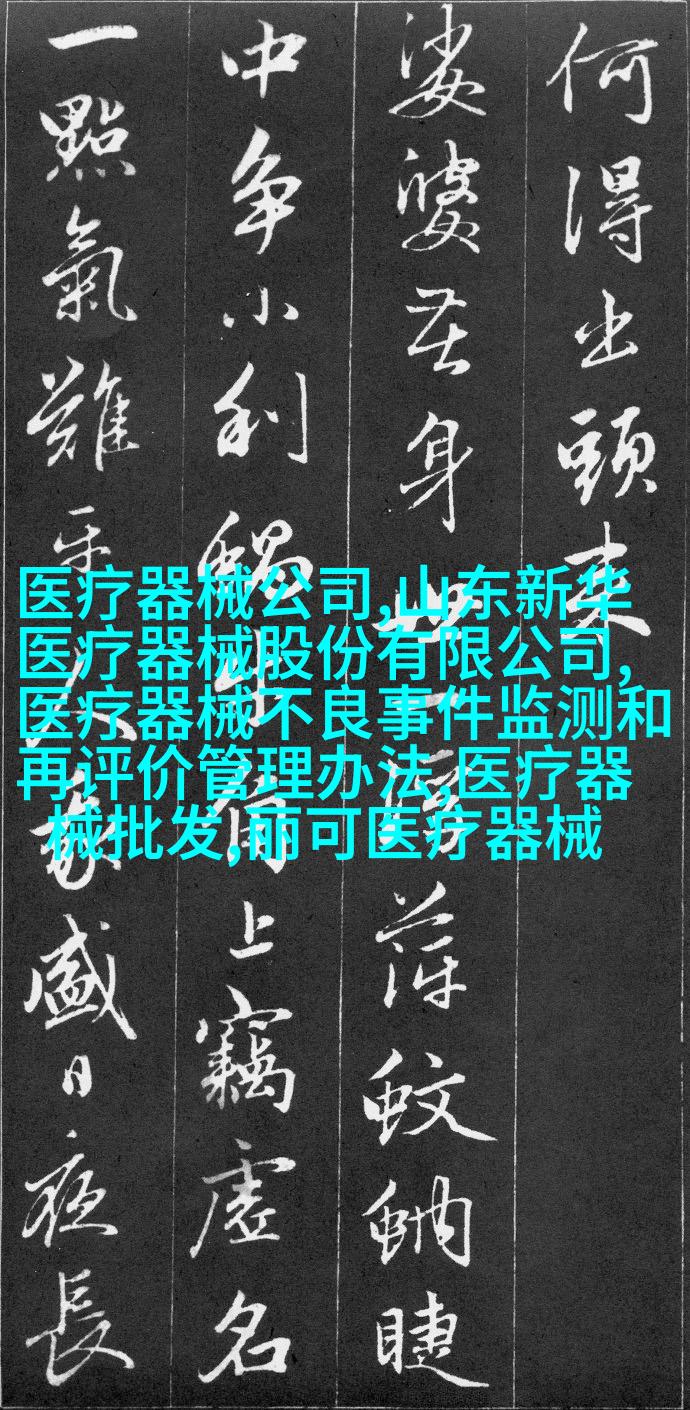 何得出頭来
娑婆苦身世一浮萍蚊蚋睫
中争小利蝸牛角上竊虚名
一點氣難平人我盛日夜長
医疗器械公司,山东新华
医疗器械股份有限公司,
医疗器械不良事件监测和
再评价管理办法,医疗器
械批发,丽可医疗器械